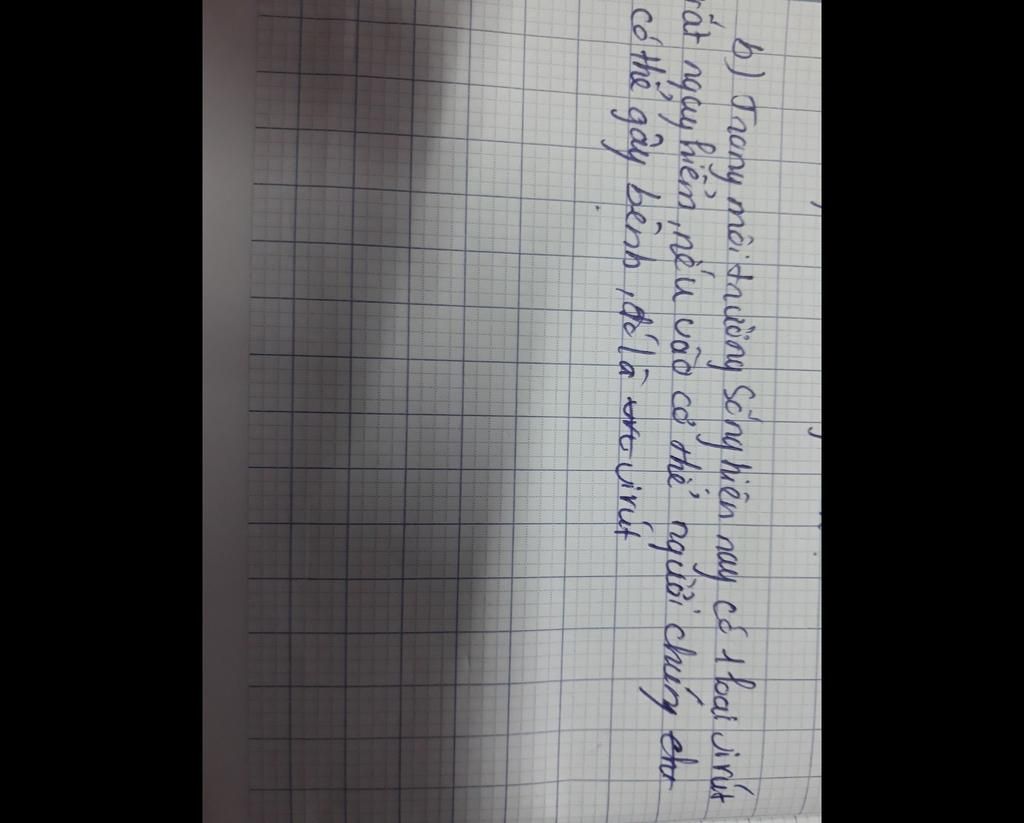 b) Trong môi trường sống hiện nay có 1 loại virút
rất nguy hiểm, nếu vào cơ thể người chúng
có thể gây bệnh, đó là virút